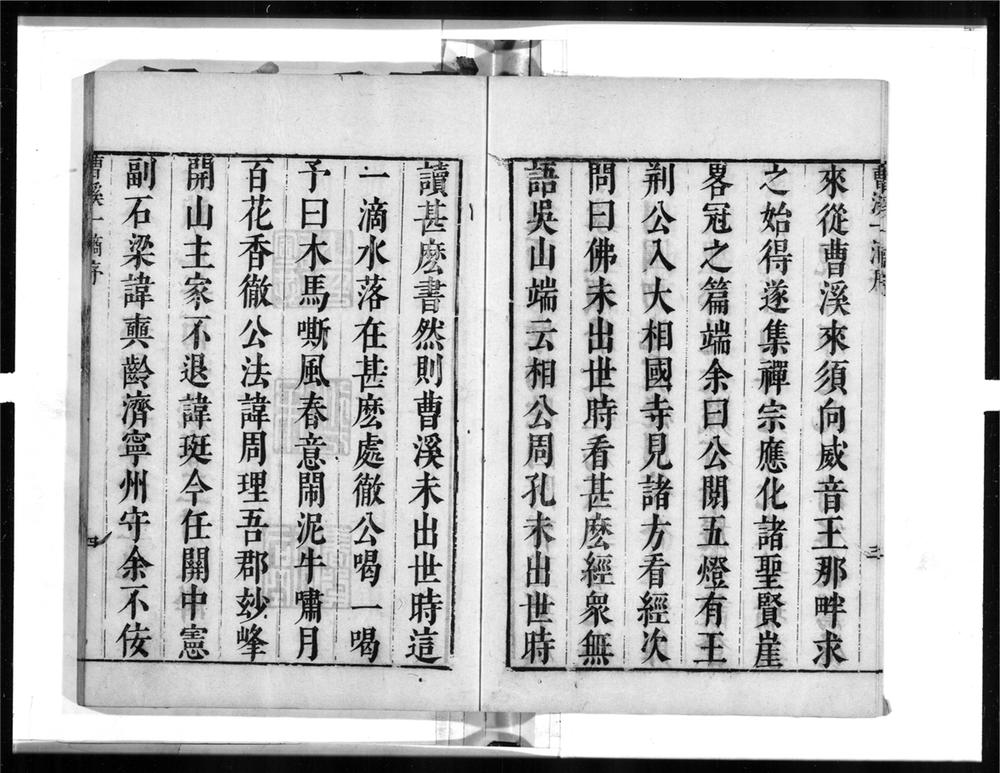 曹溪一滴序
三
來從曹溪來須向威音王那畔求
之始得遂集禪宗應化諸聖賢崖
畧冠之篇端余曰公閱五燈有王
荆公入大相國寺見諸方看經次
問曰佛未出世時看甚麽經衆無
語吳山端云相公周孔未出世時
讀甚麽書然則曹溪未出世時這
一滴水落在甚麽處徹公喝一喝
予曰木馬嘶風春意鬧泥牛嘯月
百花香徹公法諱周理吾郡玅峰
開山主家不退諱珽今任關中憲
副石梁諱䙡齡濟寧州守余不佞
曹溪一滴序
四